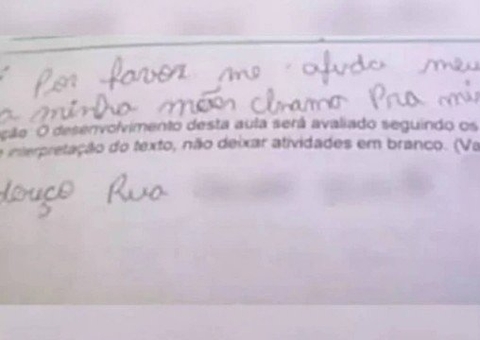 Por favor me ajuda meu
a minha mãe chamo Pra mi
ção O desenvolvimento desta aula será avaliado seguindo os
e interpretação do texto, não deixar atividades em branco. (Va
dereço Rua